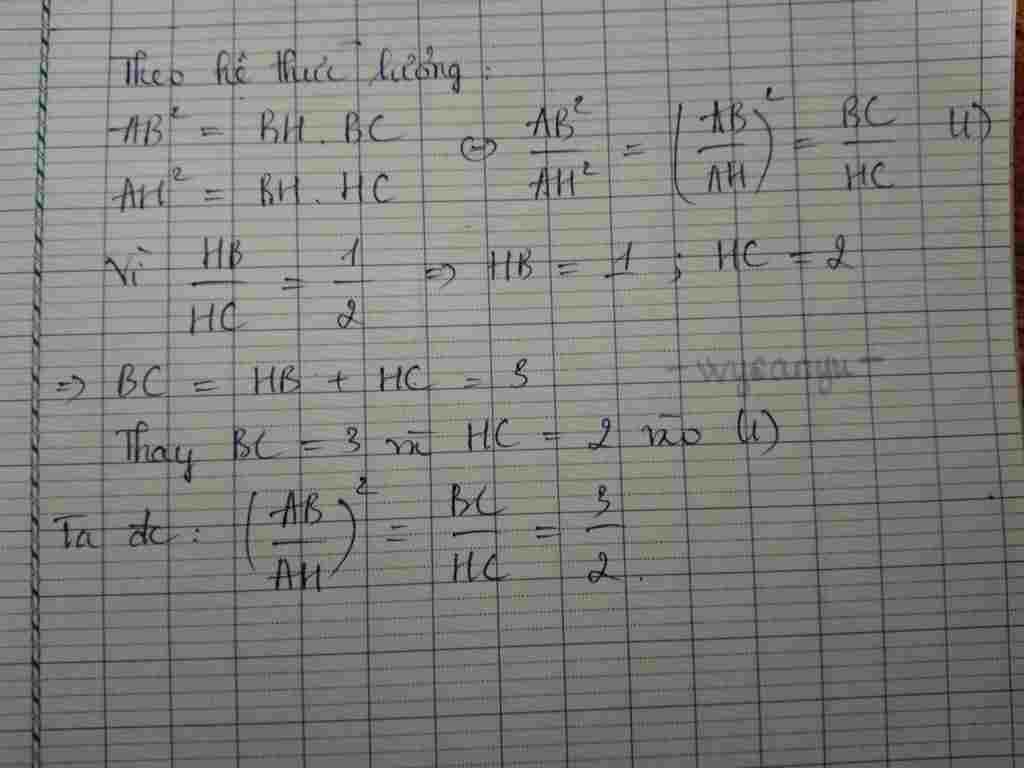 Theo hệ thức lượng :
AB² = BH . BC ⇔ AB²/AH² = (AB/AH)² = BC/HC (1)
AH² = BH . HC
Vì HB/HC = 1/2 ⇒ HB = 1 ; HC = 2
⇒ BC = HB + HC = 3
- wyeanyu -
Thay BC = 3 và HC = 2 vào (1)
Ta đc : (AB/AH)² = BC/HC = 3/2 .